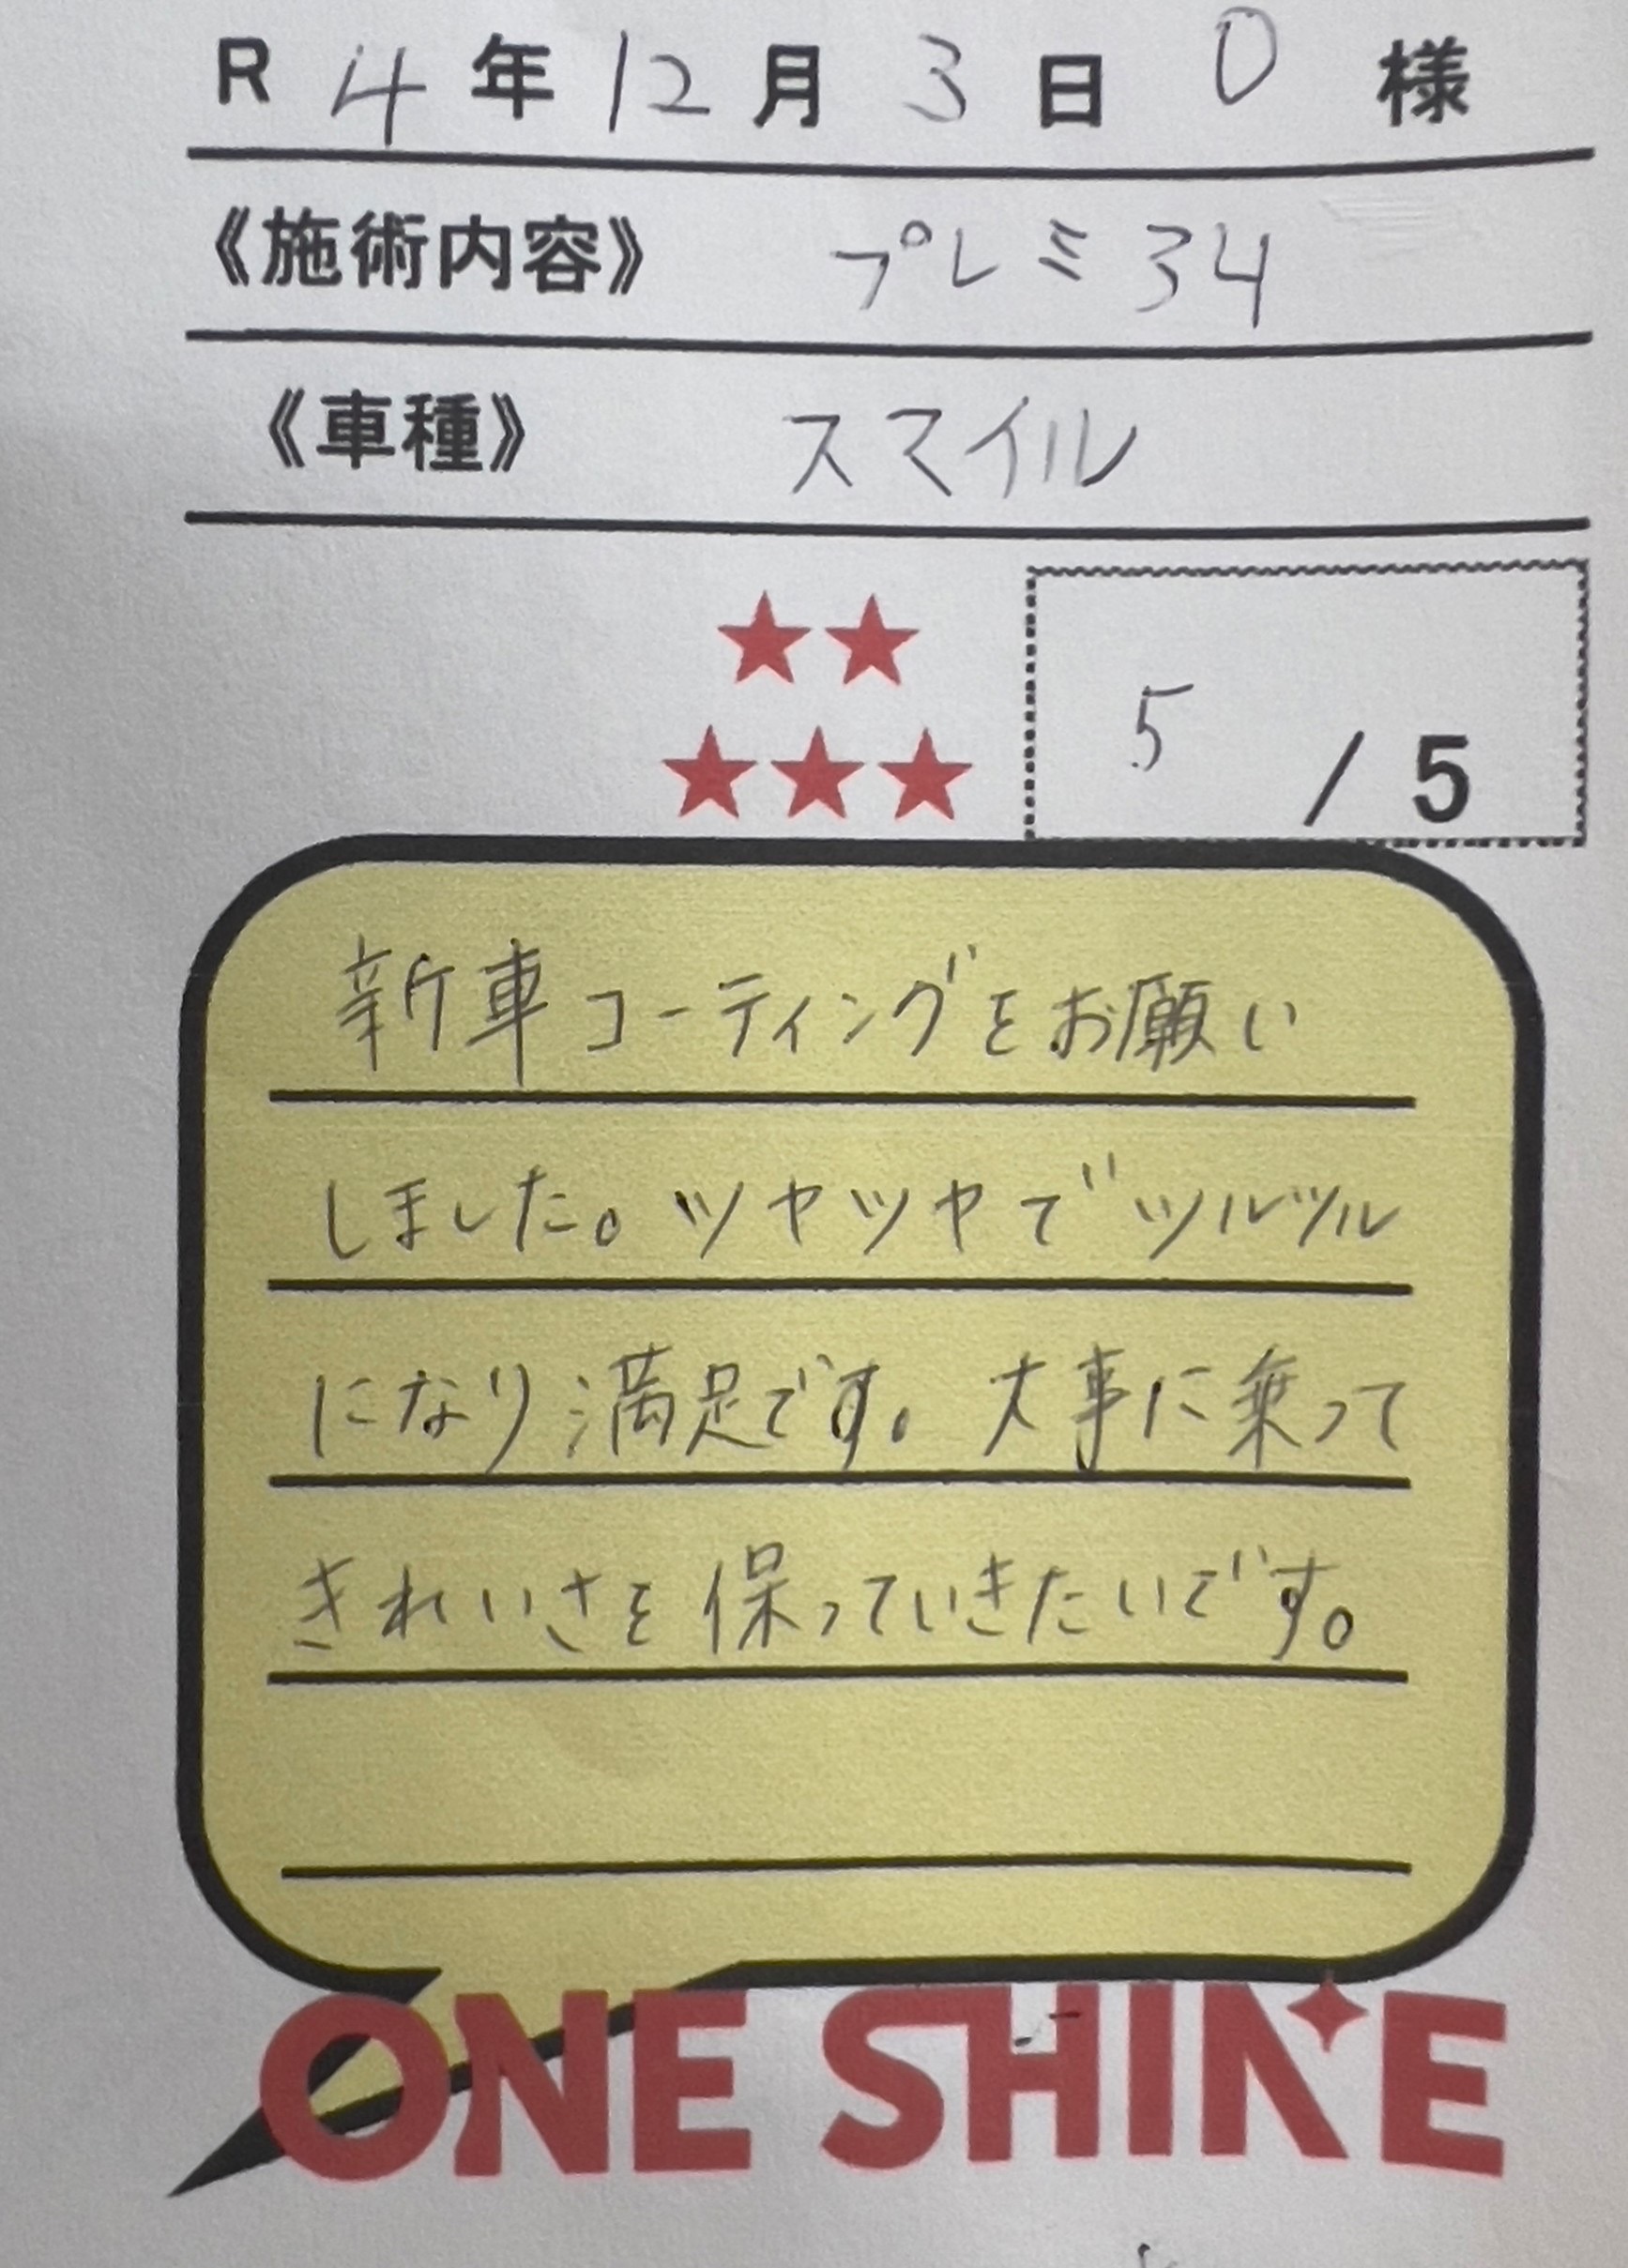 R 4年12月3日 O様
《施術内容》 プレミ34
《車種》 スマイル
★★
★★★
5/5
新車コーティングをお願い
しました。ツヤツヤでツルツル
になり満足です。大事に乗って
きれいさを保っていきたいです。
ONE SHINE